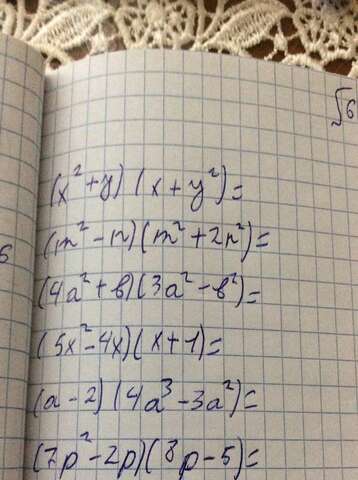 √6
(x²+y)(x+y²)=
(m²-n)(m²+2n²)=
(4a²+b)(3a²-b²)=
(5x²-4x)(x+1)=
(a-2)(4a³-3a²)=
(7p²-2p)(8p-5)=